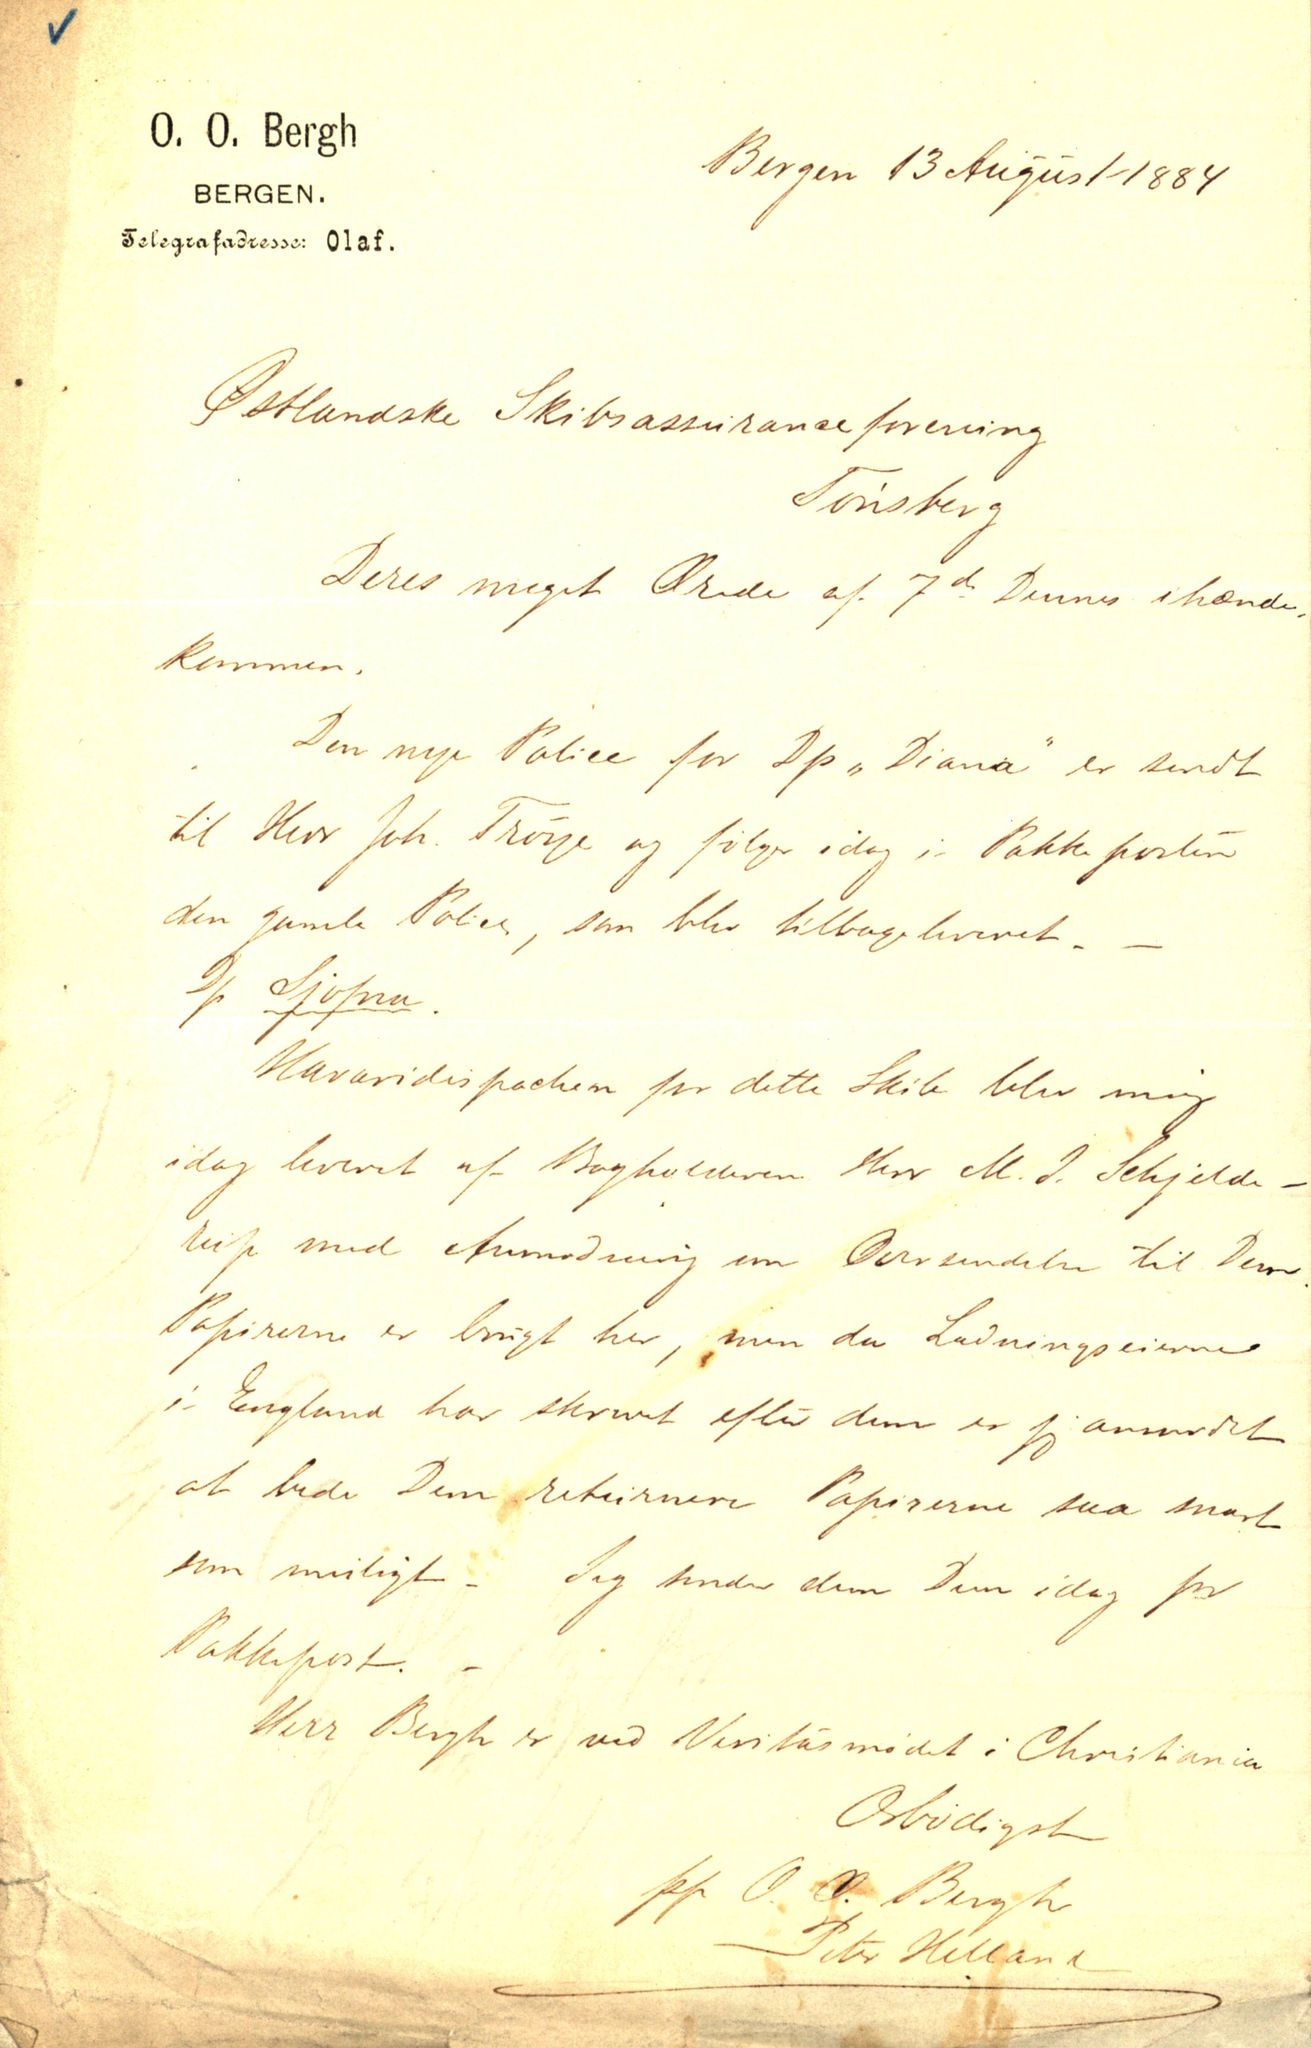 O. O. Bergh
BERGEN.
Telegrafadresse: Olaf.
Bergen 13 August 1884
Østlandske Skibsassuranceforening
Tönsberg
Deres meget Ærede af 7de Dennes ihænde-
kommen.
Den nye Police for Dp „Diana" er sendt
til Herr Joh. Tröye og følger idag i Pakkeposten
den gamle Police, som blev tilbageleveret. —
Dp Sjofna.
Havaridispachen for dette Skib blev mig
idag leveret af Bogholderen Herr M. J. Schjelde-
rup med Anmodning om Oversendelse til Dem.
Papirerne er brugt her, men da Ladningseierne
i England har skrevet efter dem er jeg anmodet
at bede Dem returnere Papirerne saa snart
som muligt — Jeg sender dem Dem idag pr
Pakkepost. —
Herr Bergh er ved Veritasmødet i Christiania
Ærbødigst
pp O. O. Bergh
Peter Helland